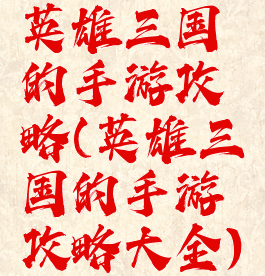 英雄三国
的手游攻
略(英雄三
国的手游
攻略大全)